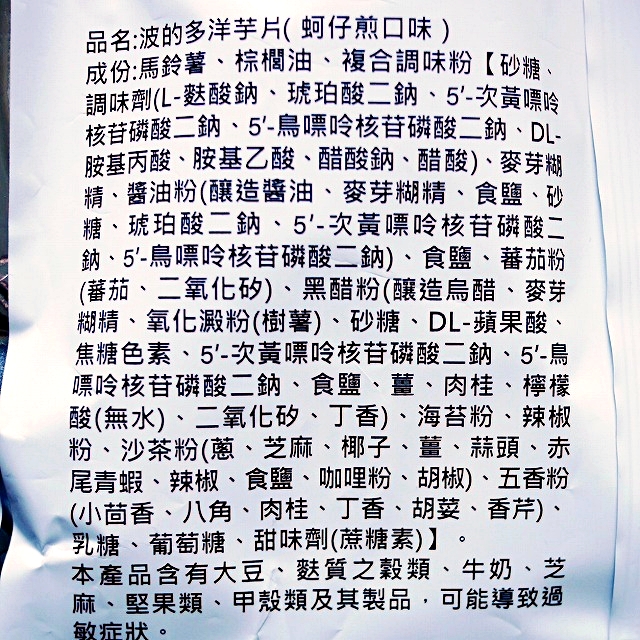 品名:波的多洋芋片( 蚵仔煎口味 )
成份:馬鈴薯、棕櫚油、複合調味粉【砂糖、
調味劑(L-麩酸鈉、琥珀酸二鈉、5′-次黃嘌呤
核苷磷酸二鈉、5′-鳥嘌呤核苷磷酸二鈉、DL-
胺基丙酸、胺基乙酸、醋酸鈉、醋酸)、麥芽糊
精、醬油粉(釀造醬油、麥芽糊精、食鹽、砂
糖、琥珀酸二鈉、5′-次黃嘌呤核苷磷酸二
鈉、5′-鳥嘌呤核苷磷酸二鈉)、食鹽、蕃茄粉
(蕃茄、二氧化矽)、黑醋粉(釀造烏醋、麥芽
糊精、氧化澱粉(樹薯)、砂糖、DL-蘋果酸、
焦糖色素、5′-次黃嘌呤核苷磷酸二鈉、5′-鳥
嘌呤核苷磷酸二鈉、食鹽、薑、肉桂、檸檬
酸(無水)、二氧化矽、丁香)、海苔粉、辣椒
粉、沙茶粉(蔥、芝麻、椰子、薑、蒜頭、赤
尾青蝦、辣椒、食鹽、咖哩粉、胡椒)、五香粉
(小茴香、八角、肉桂、丁香、胡荽、香芹)、
乳糖、葡萄糖、甜味劑(蔗糖素)】。
本產品含有大豆、麩質之穀類、牛奶、芝
麻、堅果類、甲殼類及其製品，可能導致過
敏症狀。